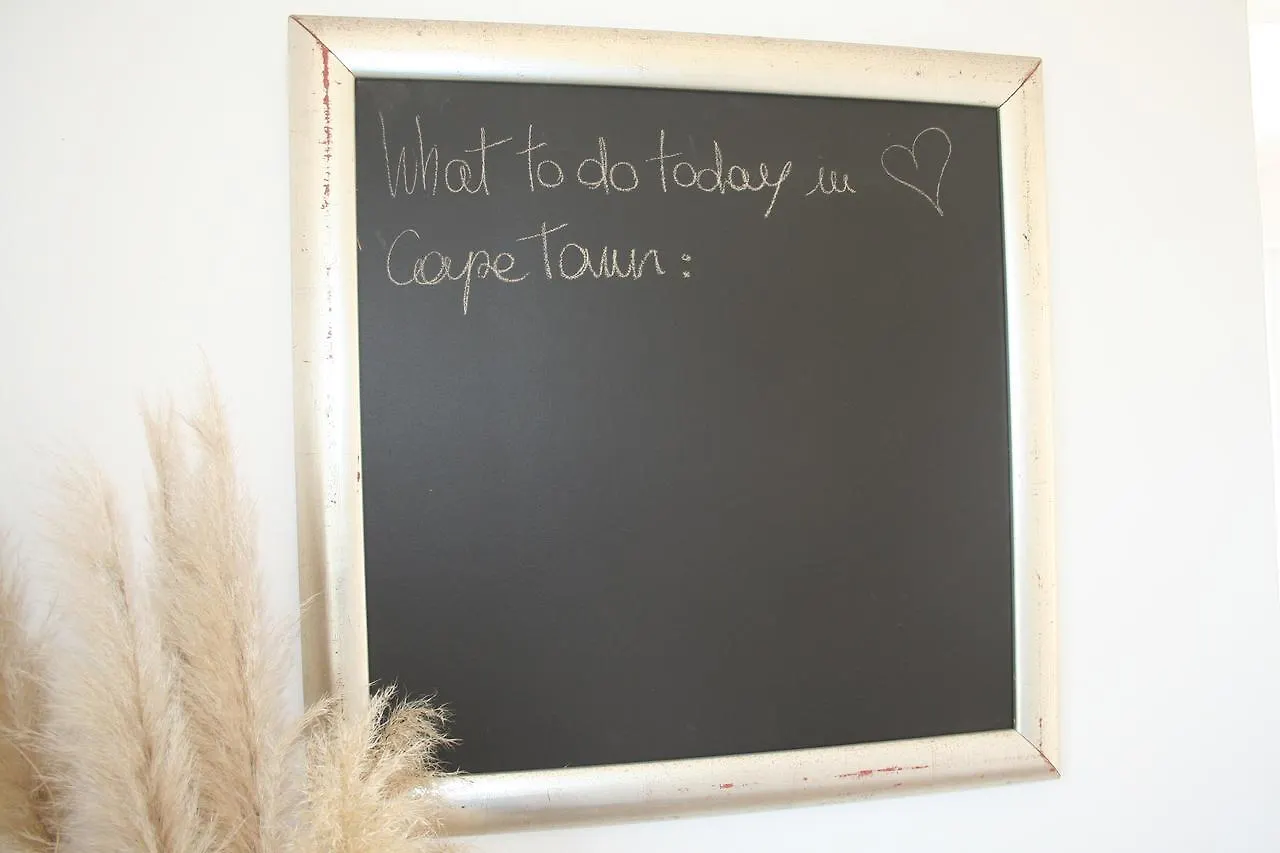 What to do today in
Cape Town: